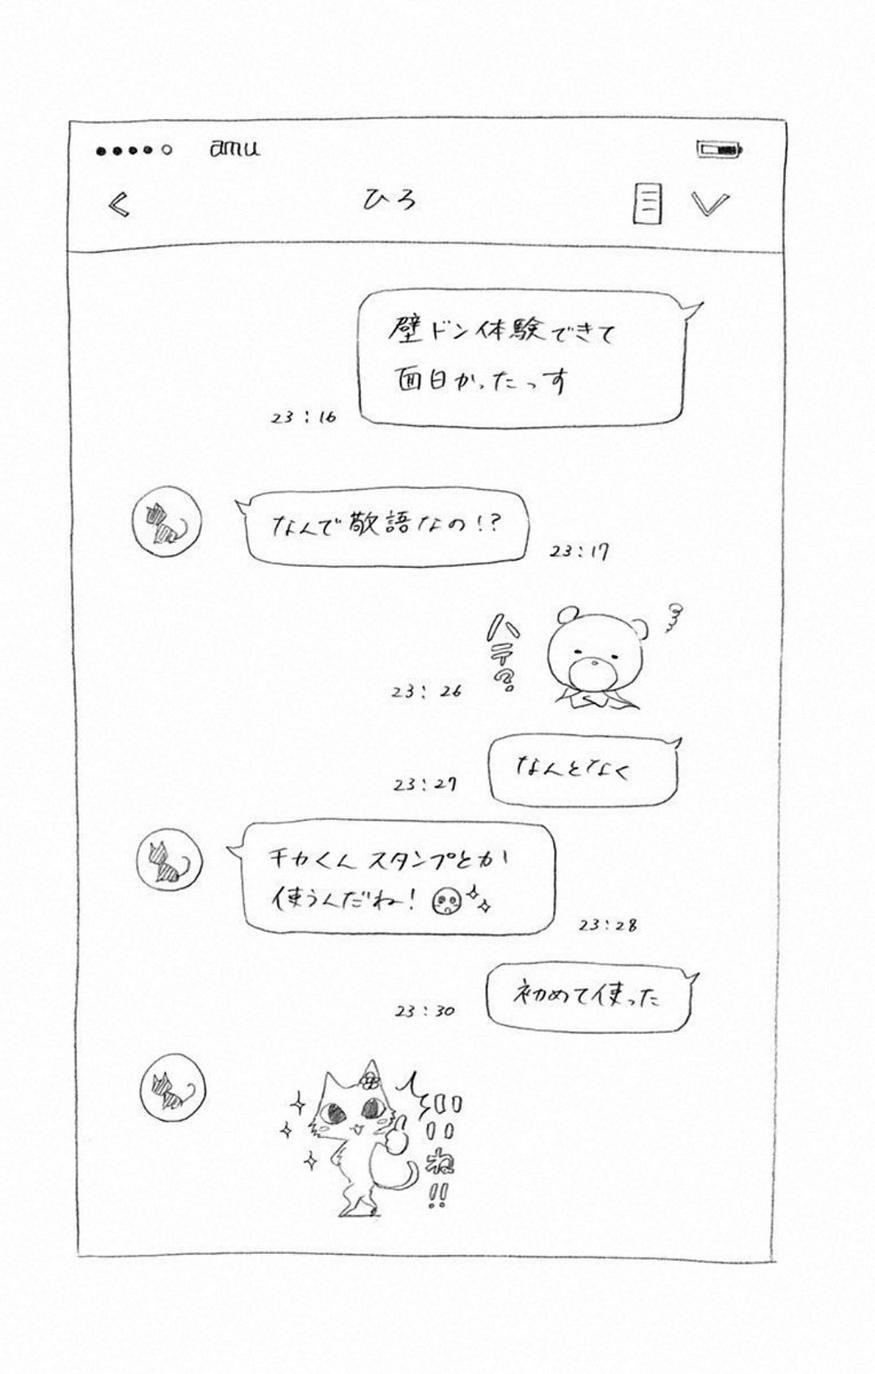 amu
ひろ
壁ドン体験できて
面白かったっす
23:16
なんで敬語なの!?
23:17
ハテ?
23:26
なんとなく
23:27
チカくんスタンプとか
使うんだね!
23:28
初めて使った
23:30
いいね!!